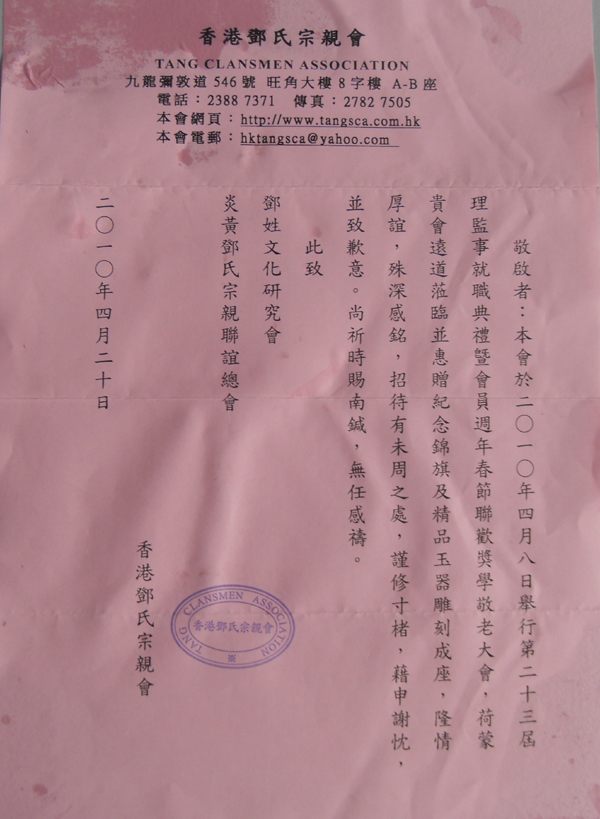 香港鄧氏宗親會
TANG CLANSMEN ASSOCIATION
九龍彌敦道 546 號 旺角大樓 8 字樓 A-B 座
電話：2388 7371 傳真：2782 7505
本會網頁：http://www.tangsca.com.hk
本會電郵：hktangsca@yahoo.com
敬啟者：本會於二〇一〇年四月八日舉行第二十三屆
理監事就職典禮暨會員週年春節聯歡獎學敬老大會，荷蒙
貴會遠道蒞臨並惠贈紀念錦旗及精品玉器雕刻成座，隆情
厚誼，殊深感銘，招待有未周之處，謹修寸楮，藉申謝忱，
並致歉意。尚祈時賜南鍼，無任感禱。
此致
鄧姓文化研究會
炎黃鄧氏宗親聯誼總會
香港鄧氏宗親會
TANG CLANSMEN ASSOCIATION
香港鄧氏宗親會
二〇一〇年四月二十日